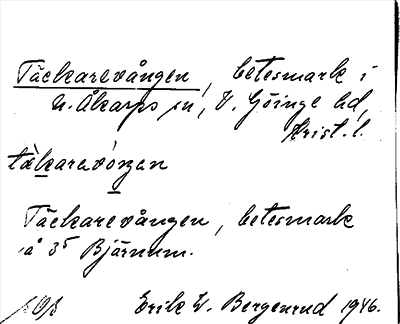 Täckarevången, betesmark i
N. Åkarps sn, V. Göinge hd,
Krist. l.
täkarevångan
Täckarevången, betesmark
å 3⁵ Bjärnum.
Erik W. Bergenrud 1946.